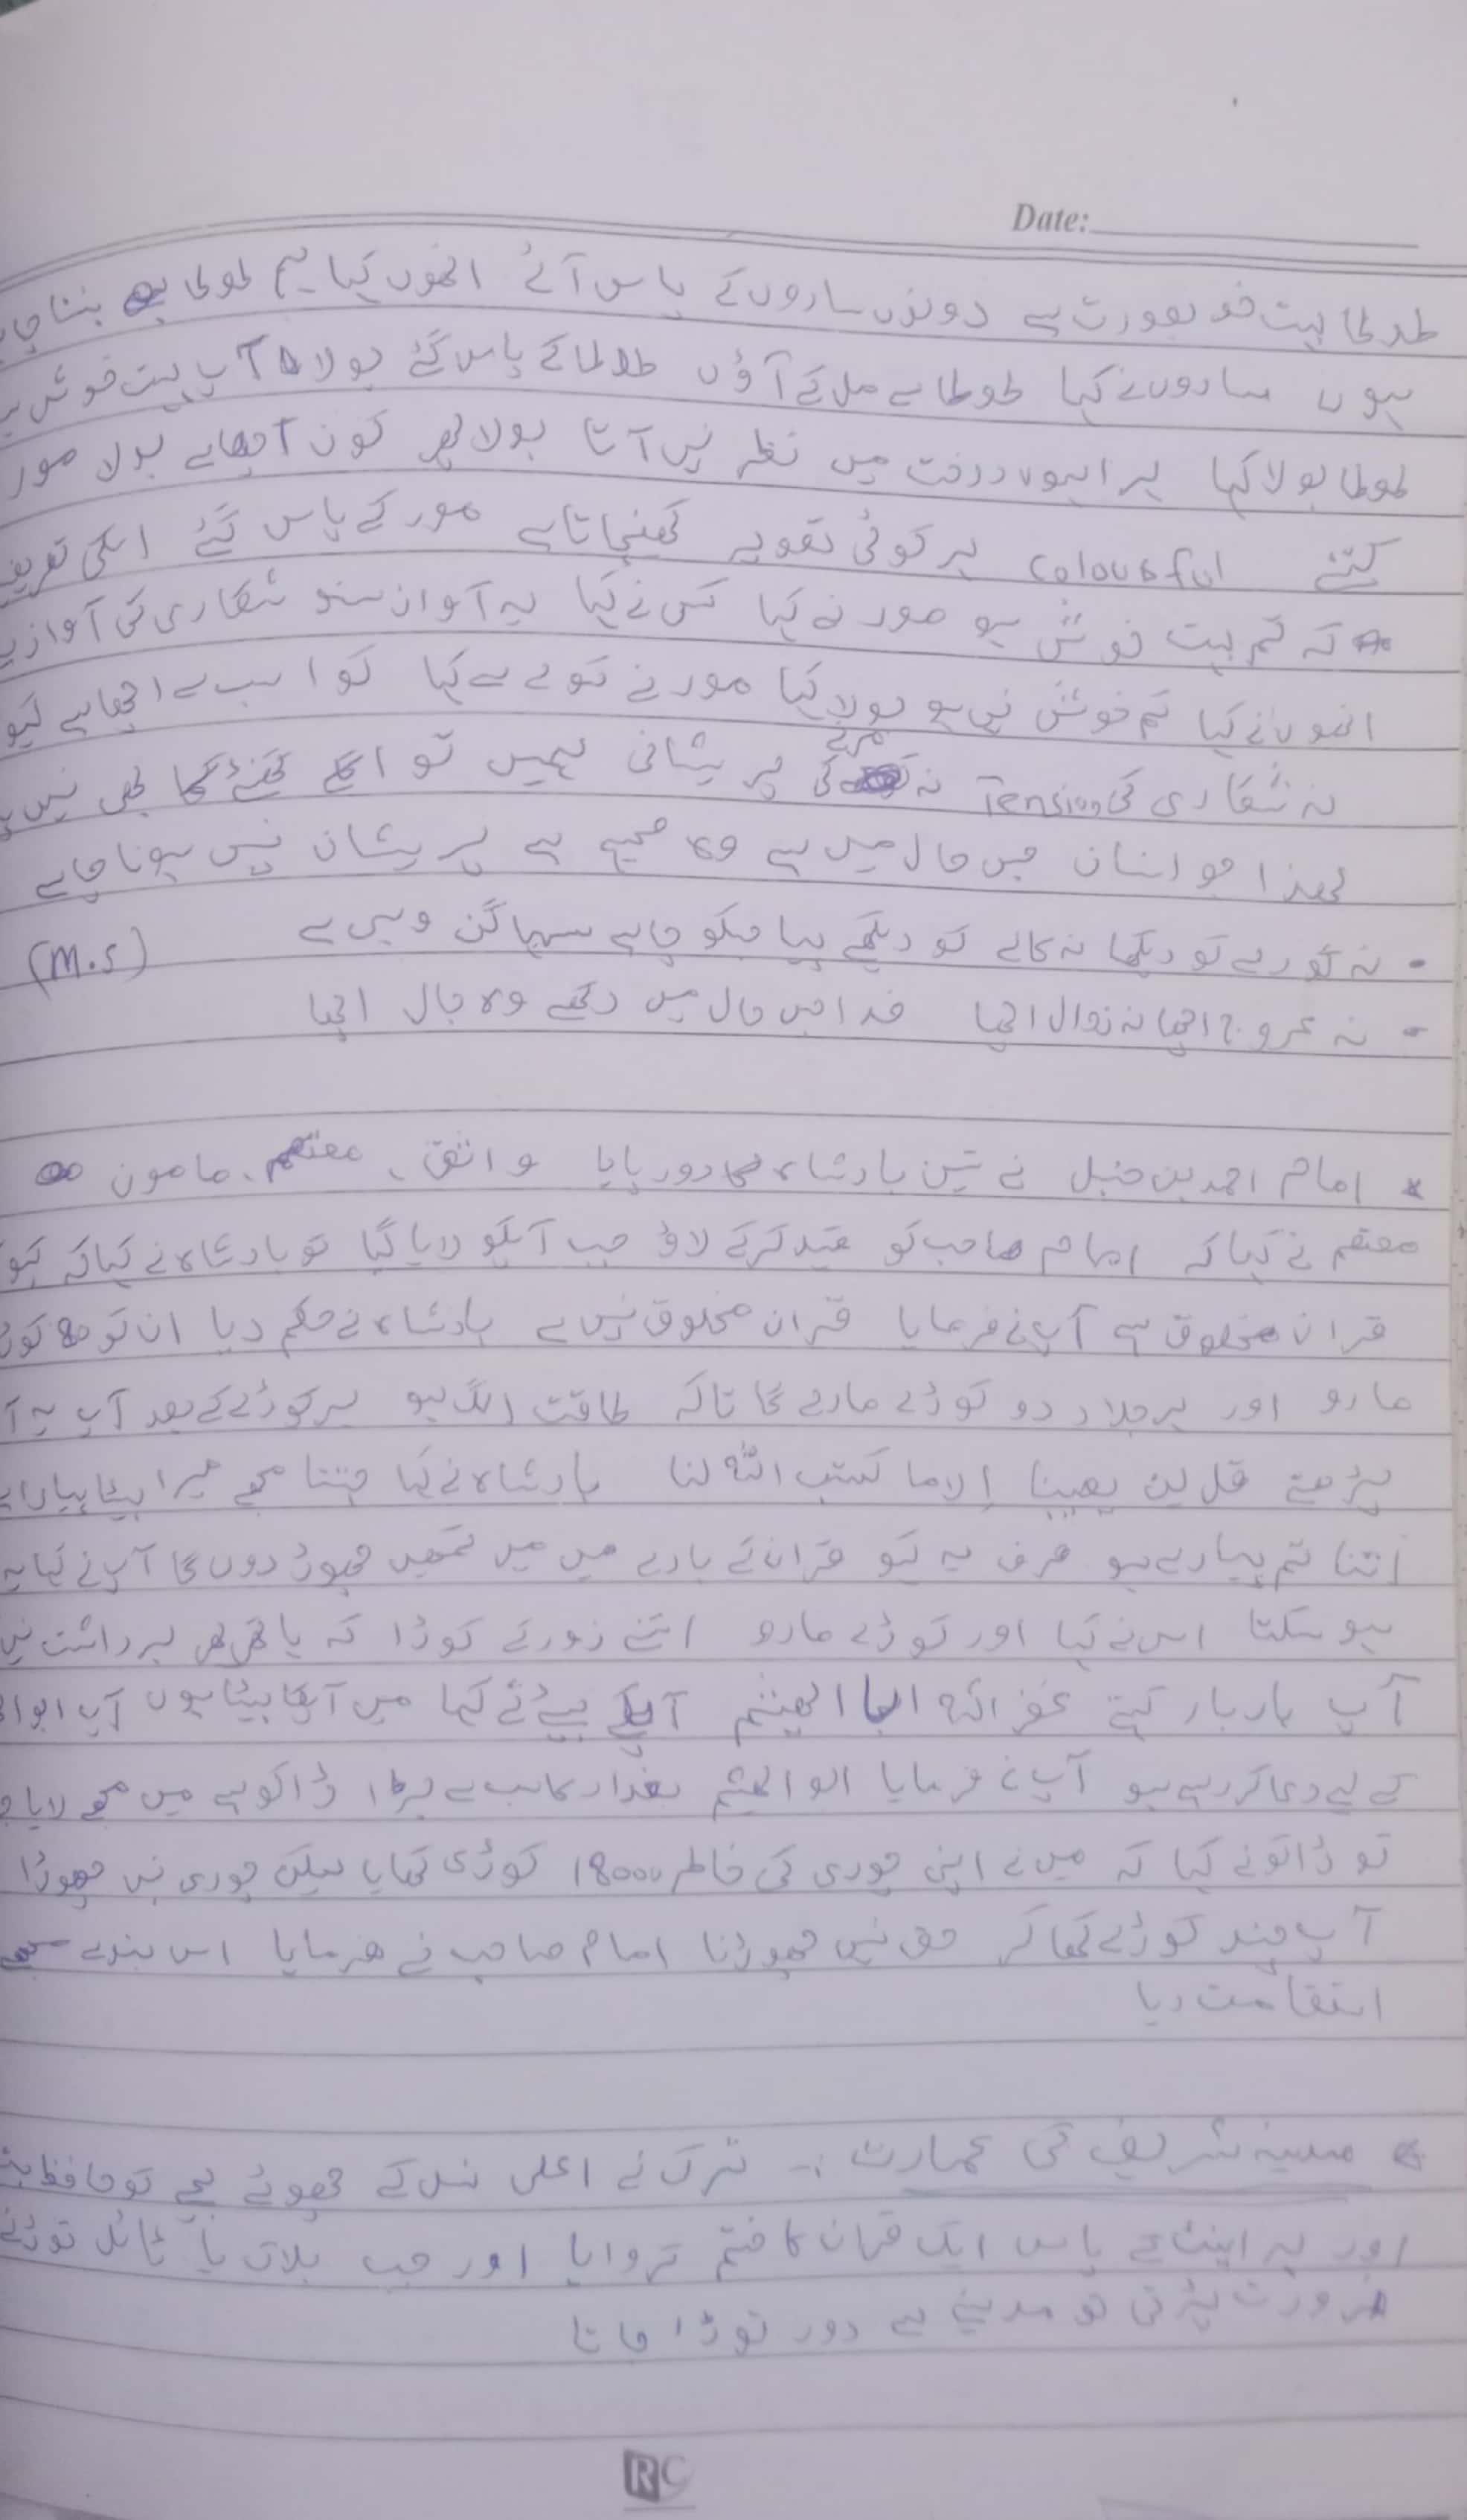 Date:
طوطا بہت خوبصورت ہے دونوں سادوں کے پاس آئے انھوں کہا ہم طوطا بننا
ہوں سادوں نے کہا طوطا سے مل کے آؤں طوطا کے پاس گئے بولا آپ بہت خوش
طوطا بولا کہا ہرا ہوں درخت میں نظر نہیں آتا بولا پھر کون اچھا ہے بولا مور
کتنے colourful ہر کوئی تصویر کھینچاتا ہے مور کے پاس گئے اسکی تعریف
کہ تم بہت خوش ہو مور نے کہا کس نے کہا یہ آواز سنو شکاری کی آواز
انھوں نے کہا تم خوش نہیں ہو بولا کہا مور نے کوے سے کہا کوا سب سے اچھا ہے
نہ شکاری کی Tension نہ مرنے کی پریشانی ہمیں تو اگلے گھنٹے کا بھی نہیں
لھذا جو انسان جس حال میں ہے وہ صحیح ہے پریشان نہیں ہونا چاہے
• نہ گورے کو دیکھا نہ کالے کو دیکھے پیا جسکو چاہے سہاگن وہی ہے (M.S)
- نہ عروج اچھا نہ زوال اچھا خدا جس حال میں رکھے وہ حال اچھا
* امام احمد بن حنبل نے تین بادشاہ کا دور پایا واثق، معتصم، مامون
معتصم نے کہا کہ امام صاحب کو قید کرکے لاؤ جب آپکو لایا گیا تو بادشاہ نے کہا کہ کہو
قران مخلوق ہے آپ نے فرمایا قران مخلوق نہیں ہے بادشاہ نے حکم دیا ان کو
مارو اور ہر جلاد دو کوڑے مارے گا تاکہ طاقت الگ ہو ہر کوڑے کے بعد آپ یہ
پڑھتے قل لن یصیبنا إلا ما کتب اللہ لنا بادشاہ نے کہا جتنا مجھے میرا بیٹا پیارا
اتنا تم پیارے ہو صرف یہ کہو قران کے بارے میں میں تمھیں چھوڑ دوں گا آپ نے کہا یہ
ہو سکتا اس نے کہا اور کوڑے مارو اتنے زور کے کوڑا کہ ہاتھی بھی برداشت
آپ بار بار کہتے غفر اللہ ابا الھیثم آپکے بیٹے نے کہا میں آپکا بیٹا ہوں آپ
کے لیے دعا کر رہے ہو آپ نے فرمایا ابو الھیثم بغداد کا سب سے بڑا ڈاکو ہے میں مجھے لایا
تو ڈاکو نے کہا کہ میں نے اپنی چوری کی خاطر 18000 کوڑی کھایا لیکن چوری نہیں چھوڑا
آپ چند کوڑے کھا کر حق نہیں چھوڑنا امام صاحب نے فرمایا اس بندے مجھے
استقامت دیا
* مدینہ شریف کی عمارت :- ترک نے اعلی نسل کے چھوٹے بچے کو حافظ
اور ہر اینٹ کے پاس ایک قران کا ختم کروایا اور جب بلاک یا ٹائل توڑنے
ضرورت پڑتی تو مدینے سے دور توڑا جاتا
RC